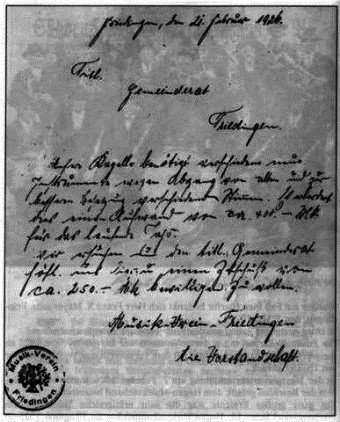 Friedingen, den 21. Februar 1926.
Titl.
Gemeinderat
Friedingen.
Unsere Kapelle benötigt verschiedene neue
Instrumente wegen Abgang von alten und zur
bessern verschiedener Stimmen. Es erfordert
dies einen Aufwand von ca. 400.- Mk
für das laufende Jahr.
Wir ersuchen den titl. Gemeinderat
höfl. uns hiezu einen Zuschuß von
ca. 250.- Mk bewilligen zu wollen.
Musik-Verein-Friedingen
die Vorstandschaft.
Musik-Verein
Friedingen